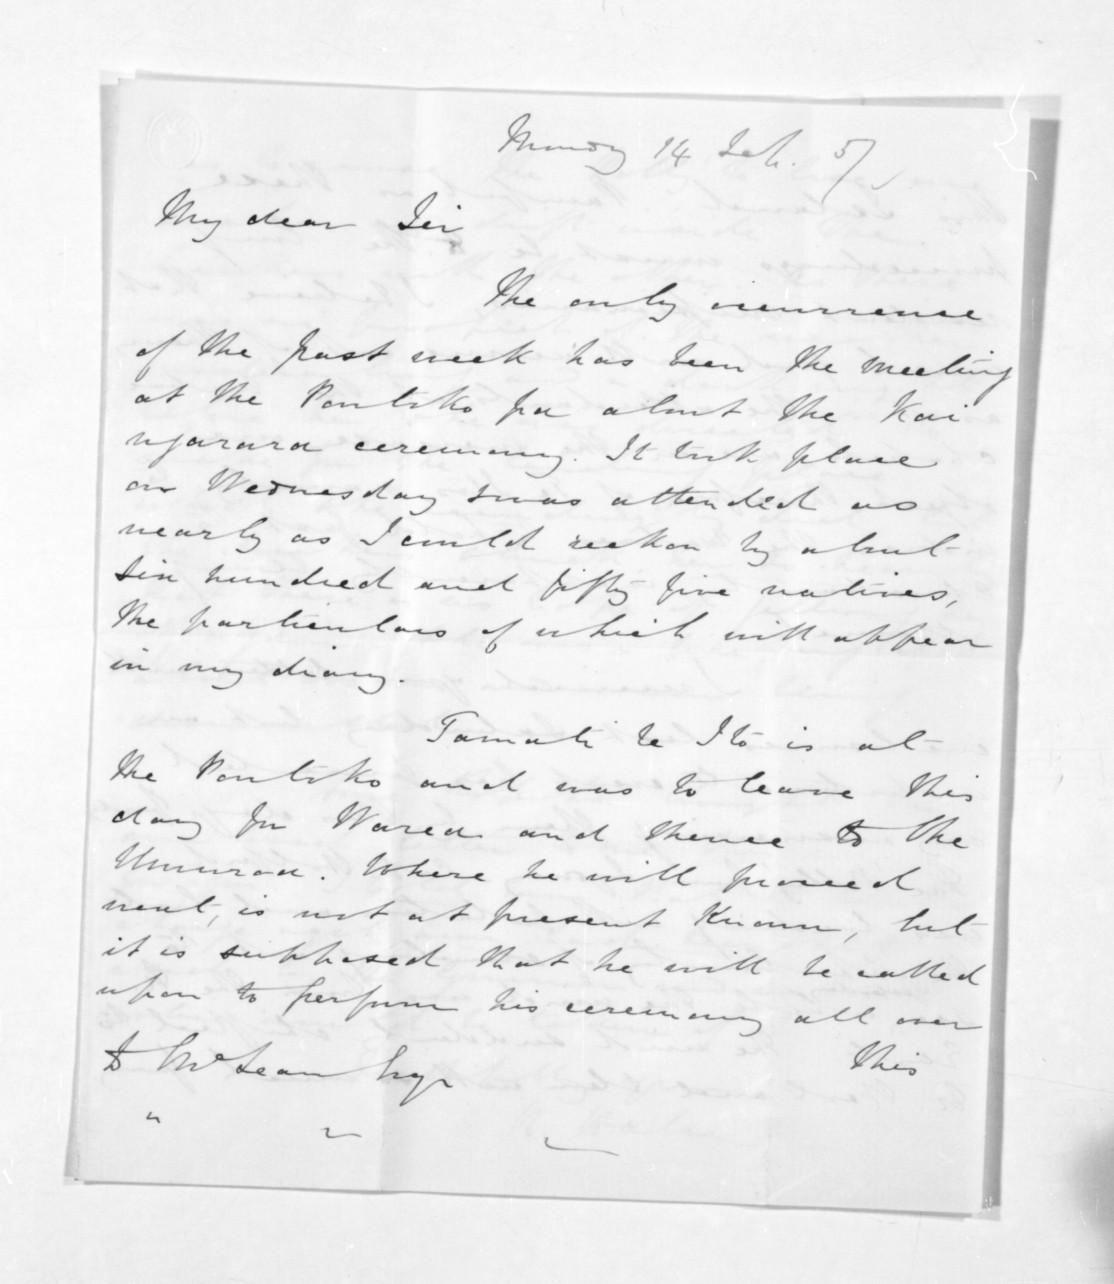 Monday 14 Feb. 57
My dear Sir
The only occurrence
of the past week has been the meeting
at the Poutoko pa about the Kai
ngarara ceremony. It took place
on Wednesday & was attended as
nearly as I could reckon by about
six hundred and fifty five natives,
the particulars of which will appear
in my diary.
Tamati te Ito is at
the Poutoko and was to leave this
day for Warea and thence to the
Umuroa. Where he will proceed
next, is not at present known, but
it is supposed that he will be called
upon to perform his ceremony all over
this
D McLean Esqr
" ~ ~